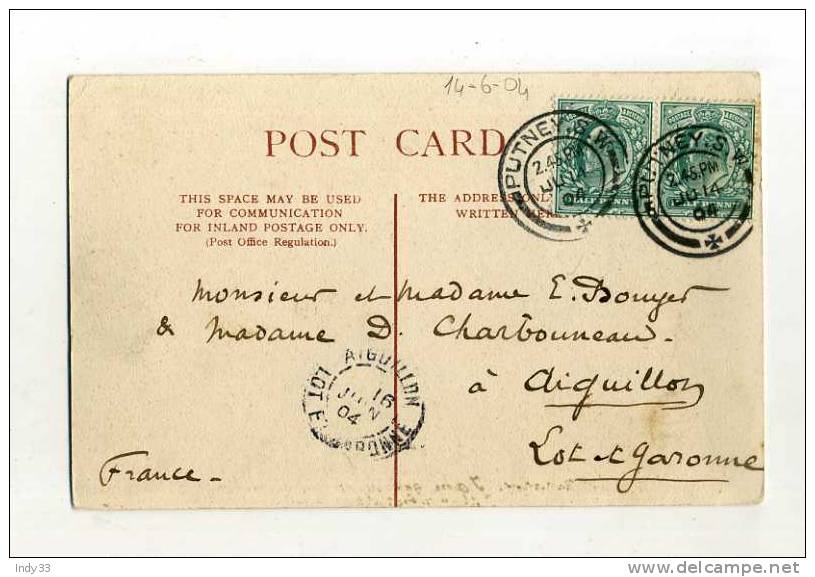 14-6-04
POST CARD
THIS SPACE MAY BE USED
FOR COMMUNICATION
FOR INLAND POSTAGE ONLY.
(Post Office Regulation.)
THE ADDRESS ONLY
WRITTEN HERE
POSTAGE
HALFPENNY
PUTNEY.S.W.
2.45.PM
JU 14
04
PUTNEY.S.W.
2.45.PM
JU 14
04
Monsieur et Madame E.
& Madame D. Charbonneau.
à Aiguillon
Lot et Garonne
France.
AIGUILLON
16
JUIN
04
LOT ET GARONNE
Indy33
delcampe.net